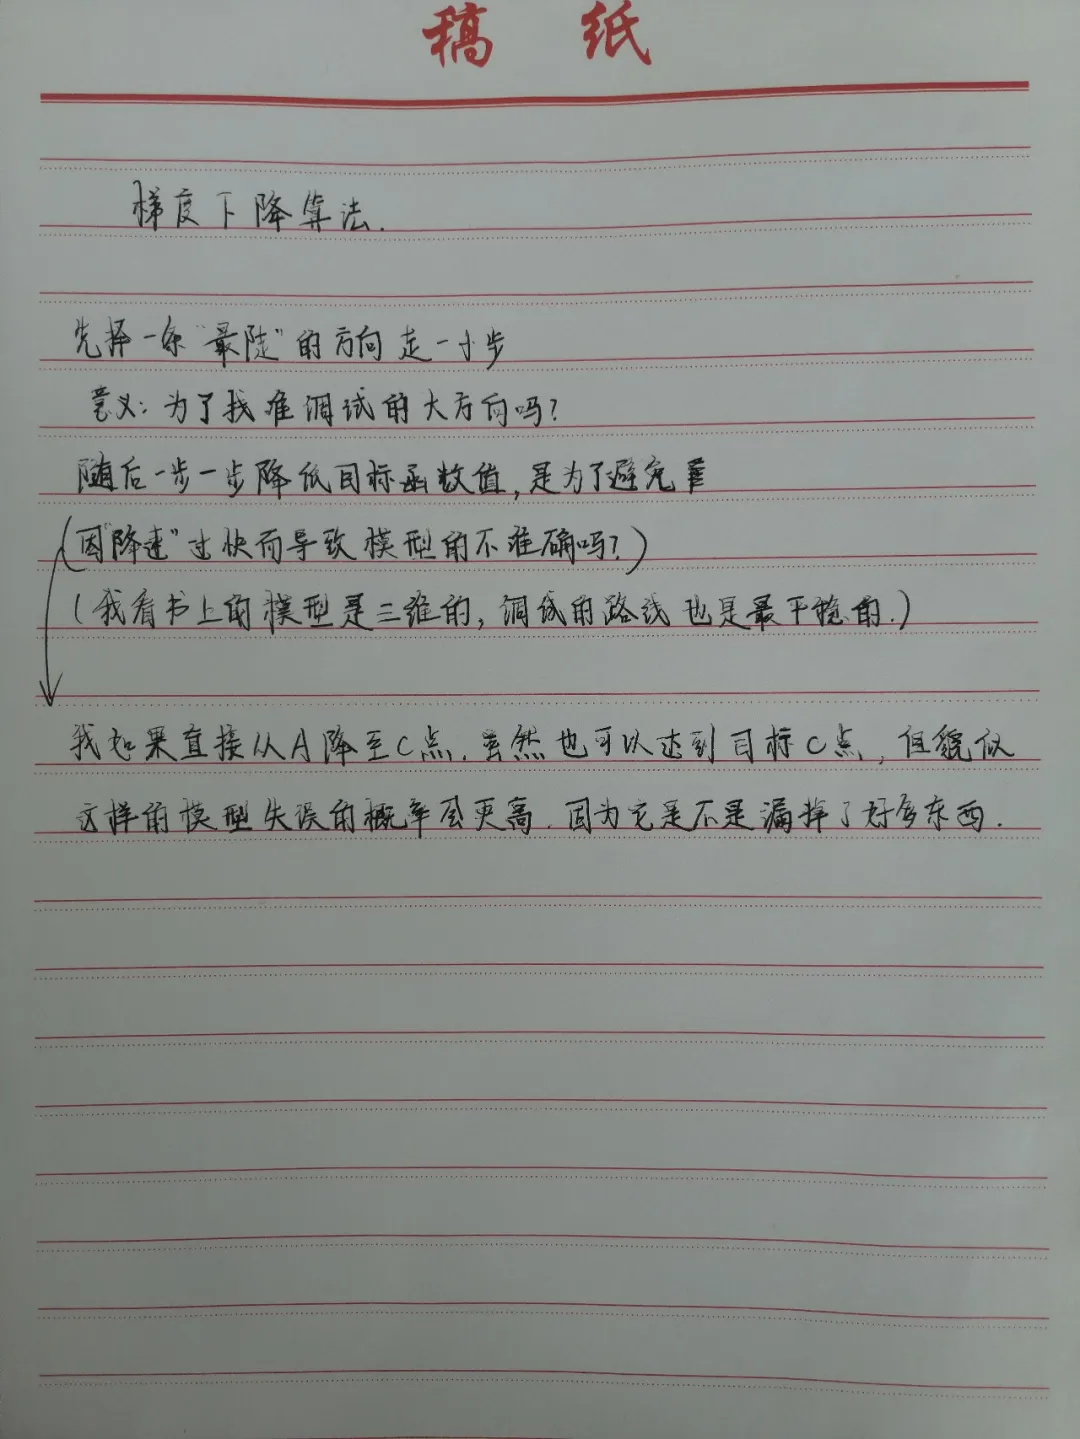 稿 纸
梯度下降算法.
先择一条"最陡"的方向走一小步
意义:为了找准调试的大方向吗?
随后一步一步降低目标函数值,是为了避免
(因"降速"过快而导致模型的不准确吗?)
(我看书上的模型是三维的,调试的路线也是最平稳的.)
我如果直接从A降至C点.虽然也可以达到目标C点,但貌似
这样的模型失误的概率会更高.因为它是不是漏掉了好多东西.